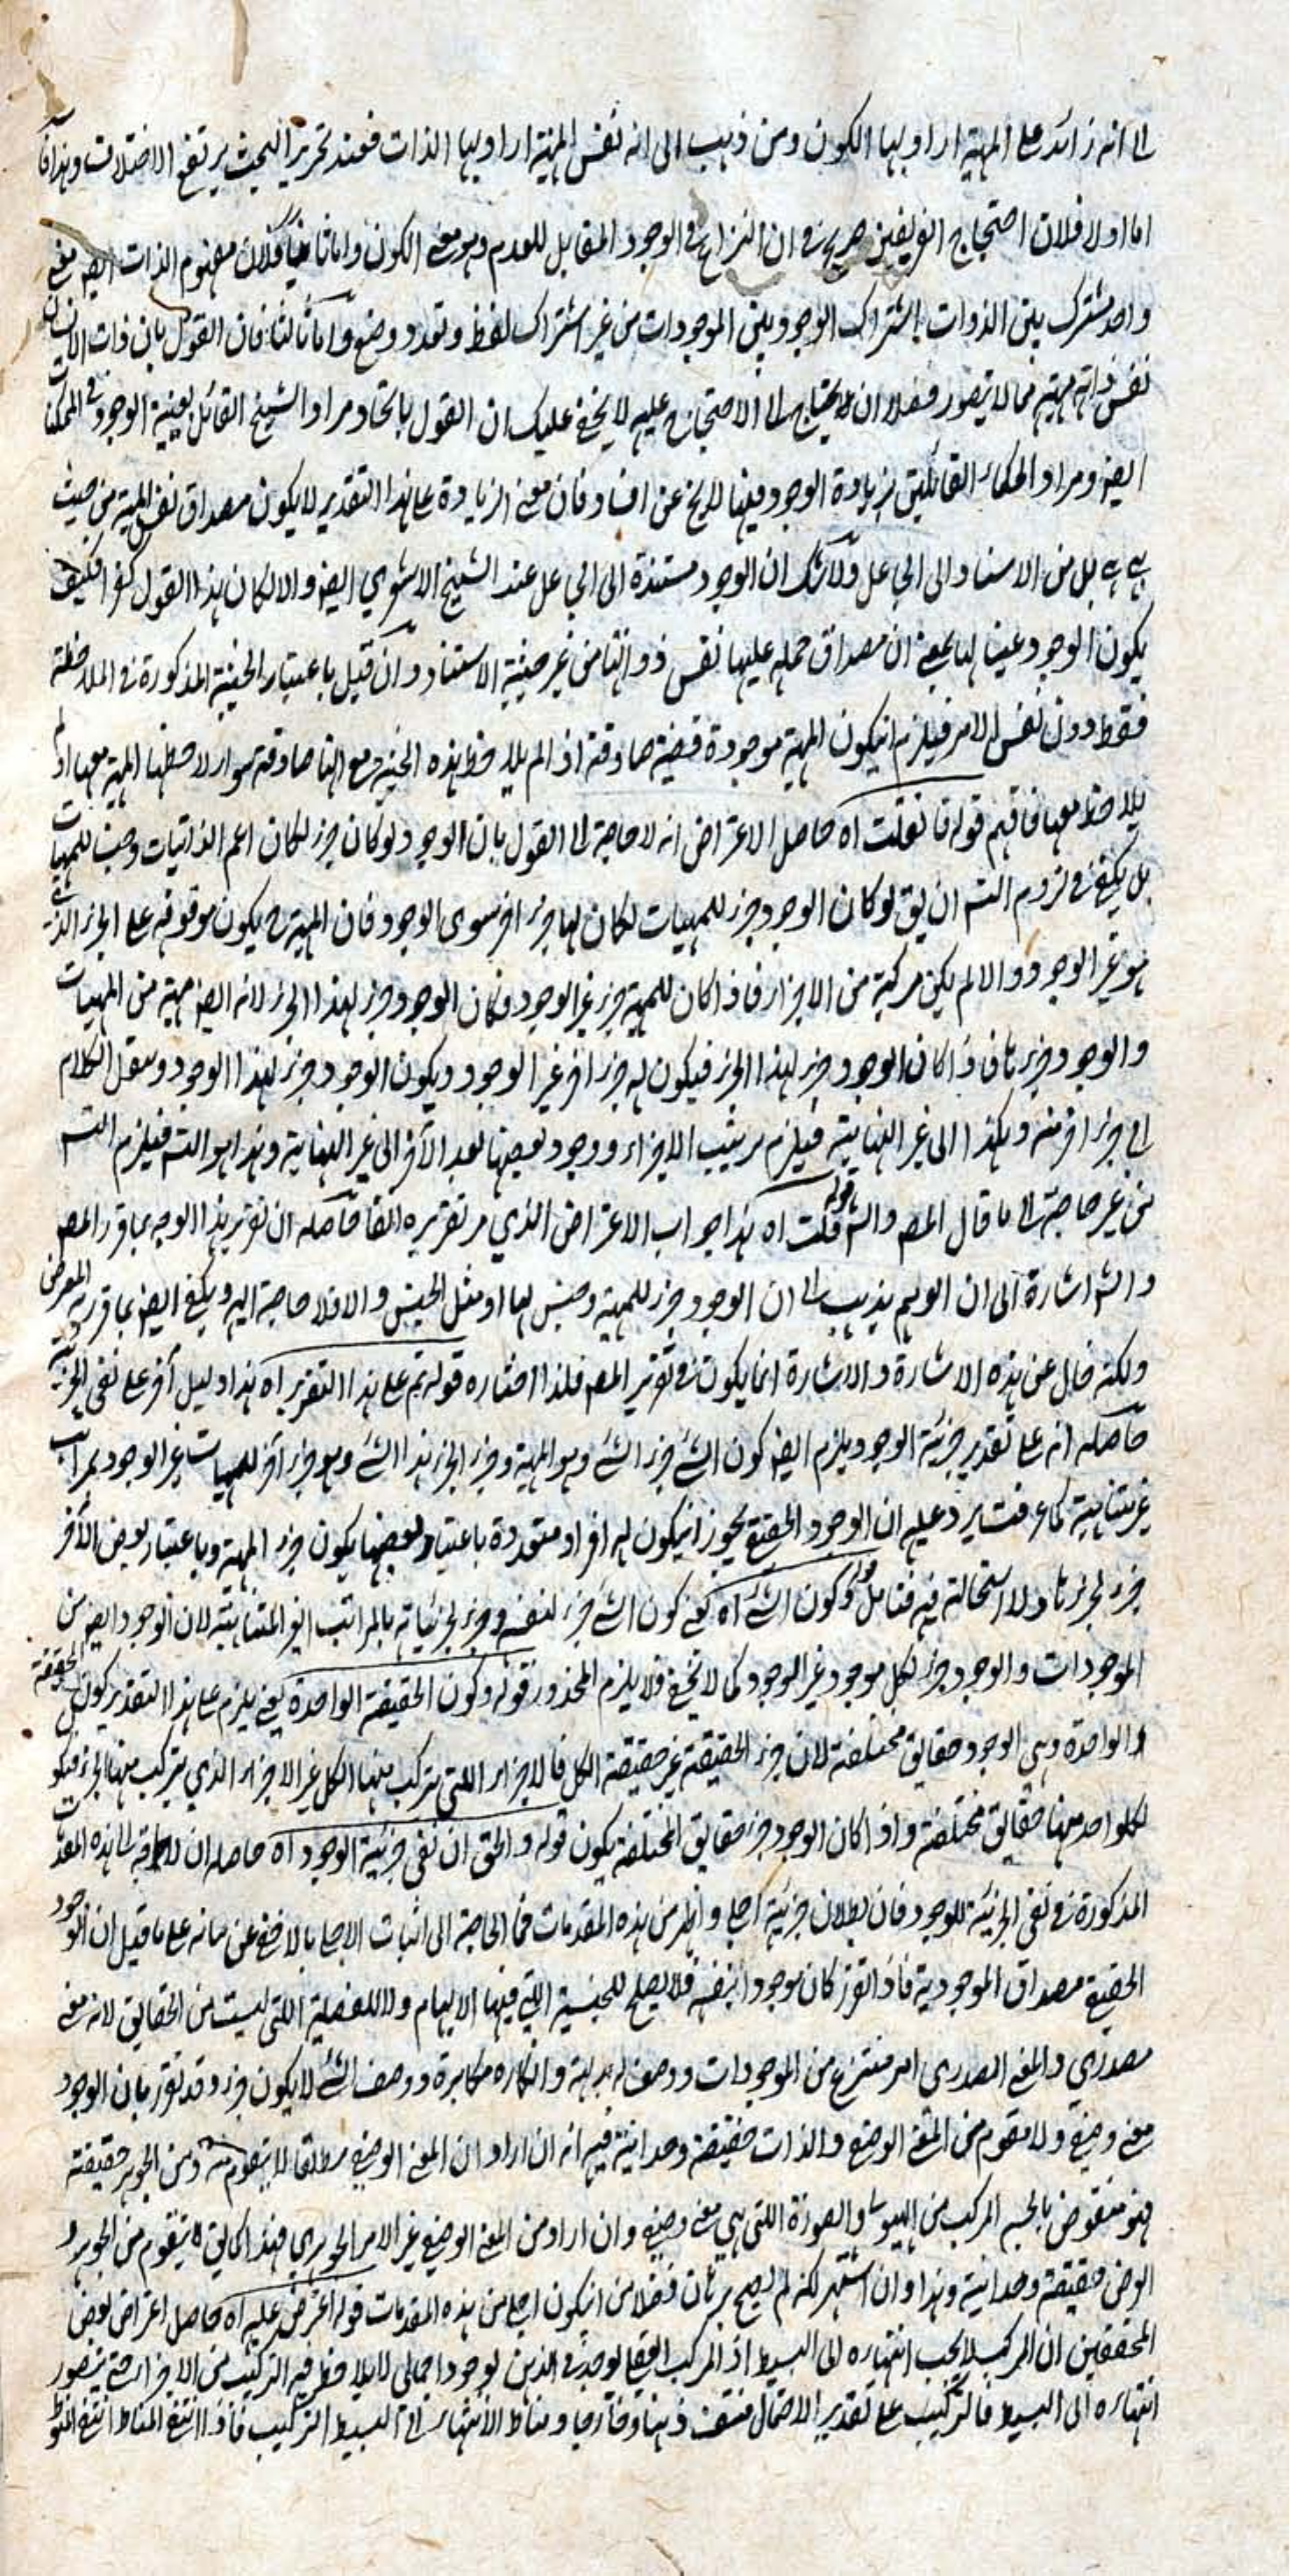 الى انه زائد على المهية اراد بها الكون ومن ذهب الى انه نفس المهية اراد بها الذات فعند تحرير البحث يرتفع الاختلاف وهذا
اما اولا فلان احتجاج الفريقين صريح في ان النزاع في الوجود المقابل للعدم وهو معنى الكون واما ثانيا فلان مفهوم الذات ايضا معنى
واحد مشترك بين الذوات اشتراك الوجود بين الموجودات من غير اشتراك لفظ وتعدد وضع واما ثالثا فان القول بان ذات الانسان
نفس ذاته مهية مما لا يتصور فضلا ان يحتاج الى الاحتجاج عليه لا يخفى عليك ان القول باتحاد مراد الشيخ القائل بعينية الوجود في الممكنات
ايضا ومراد الحكماء القائلين بزيادة الوجود فيها لا يخ عن افساد فان معنى الزيادة على هذا التقدير لا يكون مصداق نفس المهية من حيث
هي هي بل من الاسناد الى الجاعل ولا شك ان الوجود مستندة الى الجاعل عند الشيخ الاشعري ايضا والا لكان هذا القول كفرا فكيف
يكون الوجود عينا لها بمعنى ان مصداق حمله عليها نفس ذواتها من غير حيثية الاستناد وان قيل باعتبار الحيثية المذكورة في الملاحظة
فقط دون نفس الامر فيلزم ان يكون المهية موجودة قضية صادقة اذ الم يلاحظ هذه الحيثية مع انها صادقة سواء لاحظها المهية معها او لم
يلاحظ معها فافهم قوله فان قلت اه حاصل الاعتراض انه لا حاجة الى القول بان الوجود لو كان جزء لكان اعم الذاتيات وجنسا للمهيات
بل يكفي في لزوم التس ان يق لو كان الوجود جزء للمهيات لكان لها جزء اخر سوى الوجود فان المهية ح يكون موقوفة على الجزء الذي
هو غير الوجود والا لم يكن مركبة من الاجزاء فاذا كان للمهية جزء غير الوجود وكان الوجود جزء لهذا الجزء لانه ايضا مهية من المهيات
والوجود جزءها فاذا كان الوجود جزء لهذا الجزء فيكون له جزء اخر غير الوجود ويكون الوجود جزء لهذا الوجود وينقل الكلام
الى جزء اخر منه وهكذا الى غير النهاية فيلزم ترتيب الاجزاء ووجود بعضها بعد الآخر الى غير النهاية وهذا هو التس فيلزم التس
من غير حاجة الى ما قال المص والش قوله قلت اه هذا جواب الاعتراض الذي مر تقريره آنفا حاصله ان تقرير هذا الوجه بما قرر المص
والش اشارة الى ان الوهم يذهب الى ان الوجود جزء للمهية وجنس لها او مثل الجنس والا فلا حاجة اليه ويكفي ايضا بما قرر به المعترض
ولكنه خال عن هذه الاشارة والاشارة انما يكون في تقرير المص فلذا اختاره قوله ثم على هذا التقرير اه هذا دليل آخر على نفي الجزئية
حاصله انه على تقدير جزئية الوجود يلزم ايضا كون الشئ جزء الشئ وهو المهية وجزء الجزء هذا الشئ وهو جزء آخر للمهيات غير الوجود بمراتب
غير متناهية كما عرفت يرد عليه ان الوجود الحقيقي يجوز ان يكون له افراد متعددة باعتبار بعضها يكون جزء المهية وباعتبار بعض الآخر
جزء لجزءها ولا استحالة فيه فتامل قوله وكون الشئ اه يعني كون الشئ جزء لنفسه وجزء لجزئياته بالمراتب الغير المتناهية لان الوجود ايضا من
الموجودات والوجود جزء لكل موجود غير الوجود كما لا يخفى فلا يلزم المحذور قوله وكون الحقيقة الواحدة يعني يلزم على هذا التقدير كون الحقيقة
الواحدة وهي الوجود حقايق مختلفة لان جزء الحقيقة غير حقيقة الكل فالاجزاء اللتي يتركب منها الكل غير الاجزاء الذي يتركب منها الجزء فيكون
لكل واحد منها حقايق مختلفة واذا كان الوجود جزء حقايق المختلفة يكون قوله والحق ان نفي جزئية الوجود اه حاصله ان لا حاجة الى هذه المقدمات
المذكورة في نفي الجزئية للوجود فان بطلان جزئية اجلى واظهر من هذه المقدمات فما الحاجة الى اثبات الاجلى بالاخفى عن بيانه على ما قيل ان الوجود
الحقيقي مصداق الموجودية فاذا تقرر كان موجودا بنفسه فلا يصلح للجنسية التي فيها الابهام ولا للفصلية اللتي ليست من الحقايق لانه معنى
مصدري والمعنى المصدري امر منتزع من الموجودات ووصف له بديهة وانكاره مكابرة ووصف الشئ لا يكون جزء وقد تقرر بان الوجود
معنى وصفي ولا مقوم من المعنى الوصفي والذات حقيقة وحدانية فيه انه ان اراد ان المعنى الوصفي مطلقا لا يتقوم منه ومن الجوهر حقيقة
فهو منقوض بالجسم المركب من الهيولى والصورة اللتي هي معنى وصفي وان اراد من المعنى الوصفي غير الامر الجوهري فهذا كما يق لا يتقوم من الجوهر و
العرض حقيقة وحدانية وهذا وان اشتهر لكنه لم يصح برهان فضلا من ان يكون اجلى من هذه المقدمات قوله اعترض عليه اه حاصل اعتراض بعض
المحققين ان المركب لا يجب انتهاءه الى البسيط اذ المركب انما يوجد في الذهن بوجود اجمالي لا يلاحظ فيه التركيب من الاجزاء حتى يتصور
انتهاره الى البسيط فالتركيب على تقدير الاحتمال منتف ذهنا وخارجا ومناط الانتهاء الى البسيط التركيب فاذا انتفى المناط انتفى المنوط